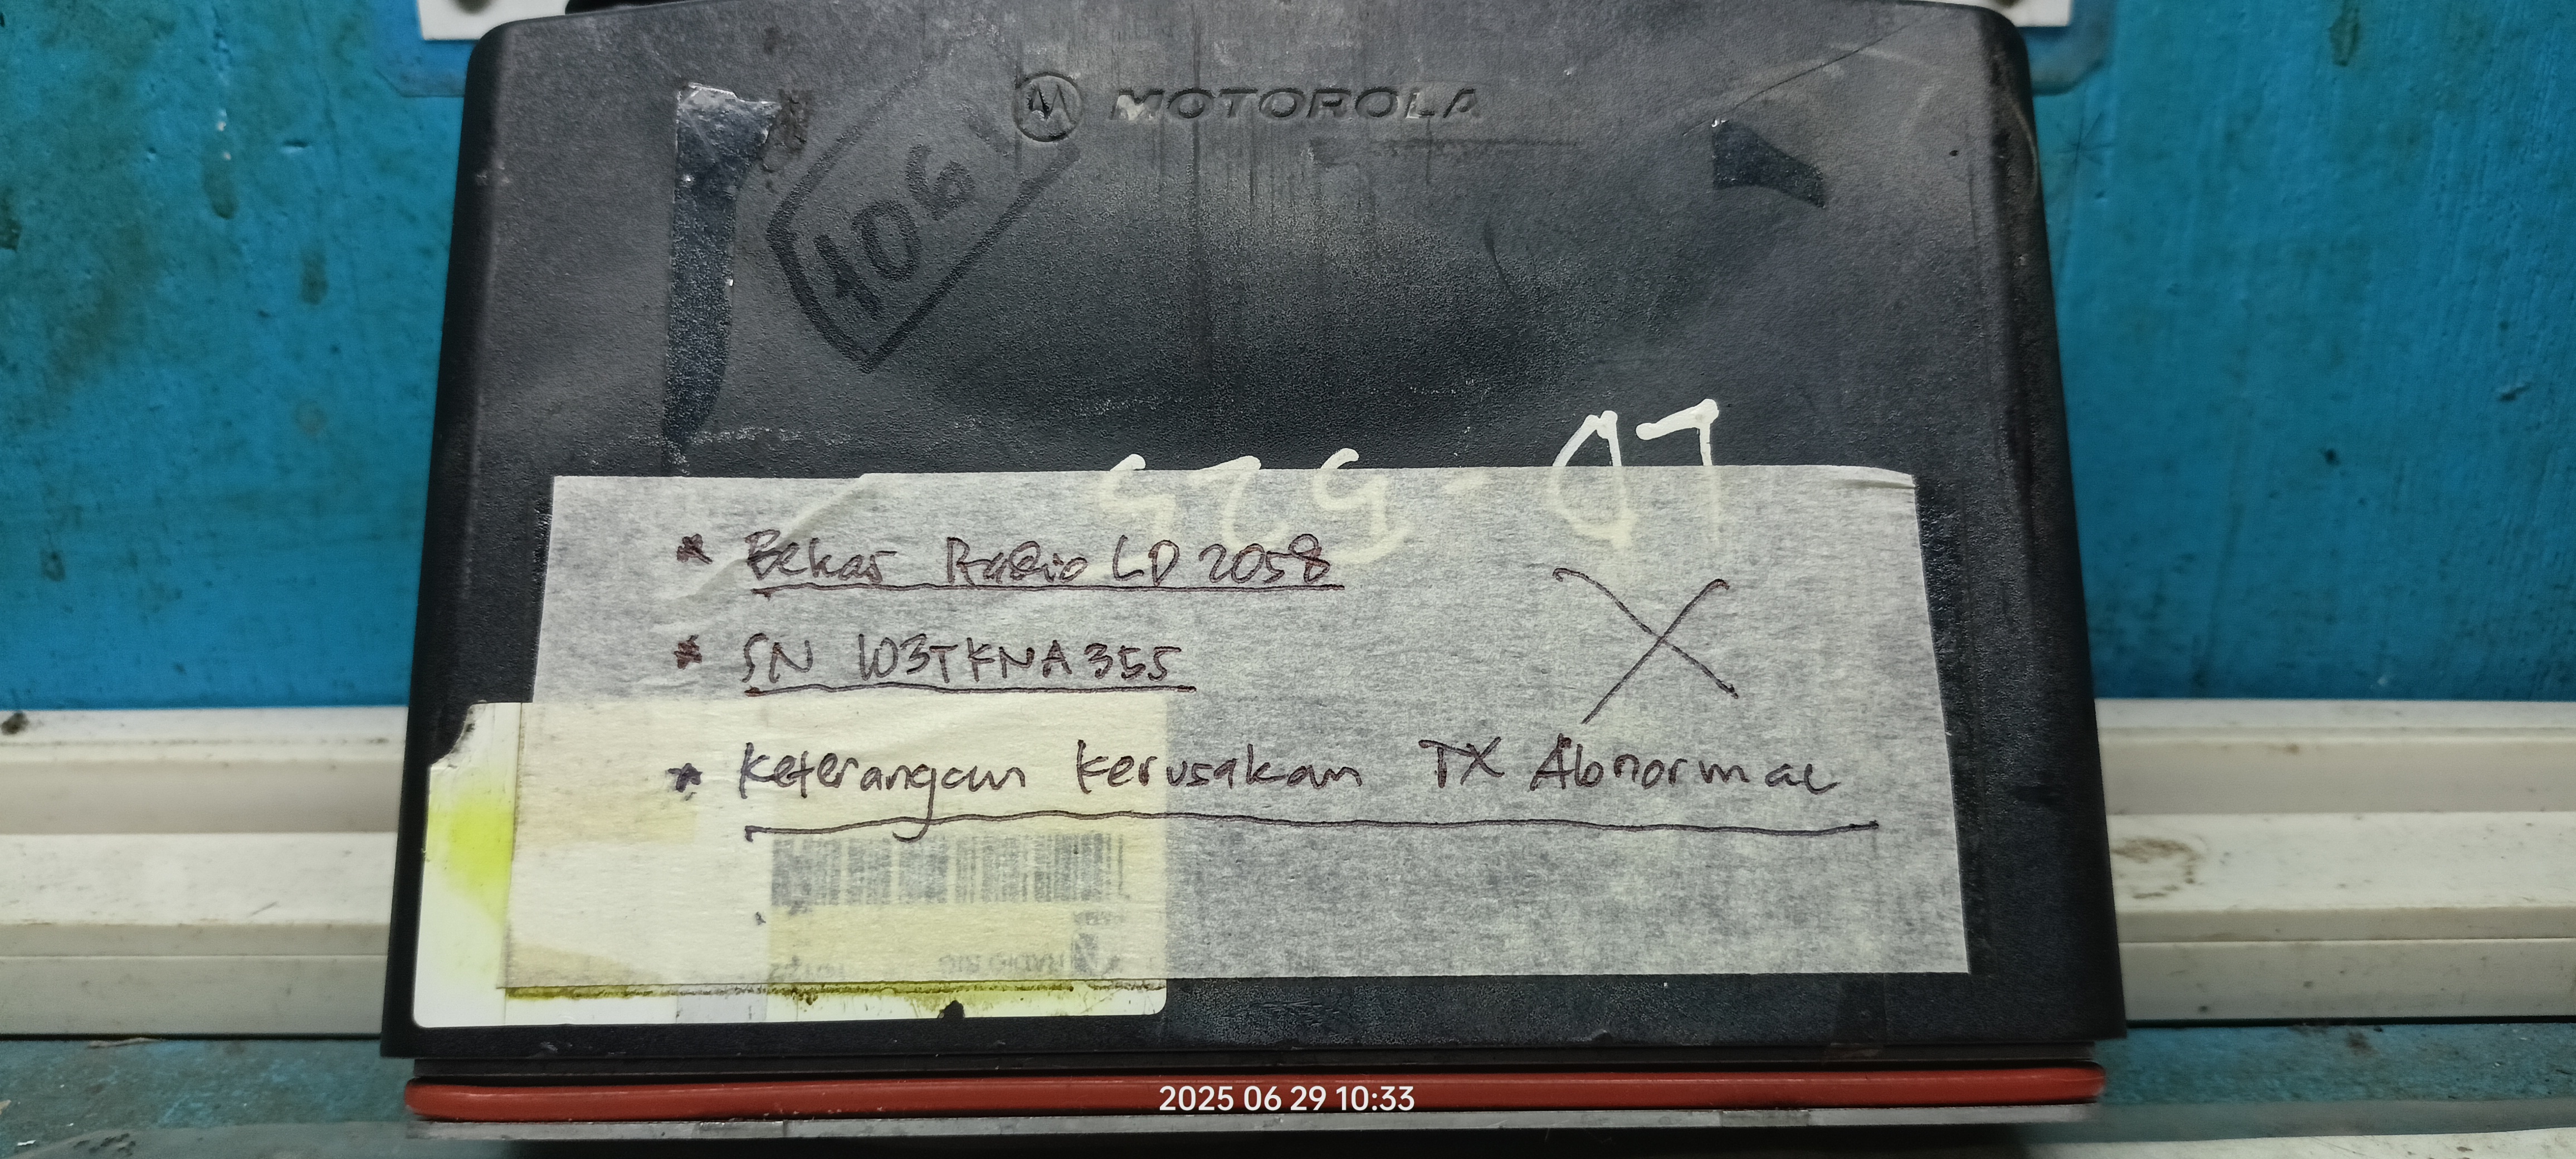 MOTOROLA
106
* Bekas Radio LD 2058
* SN 103TKNA355
X
* Keterangan Kerusakan TX Abnormal
2025 06 29 10:33